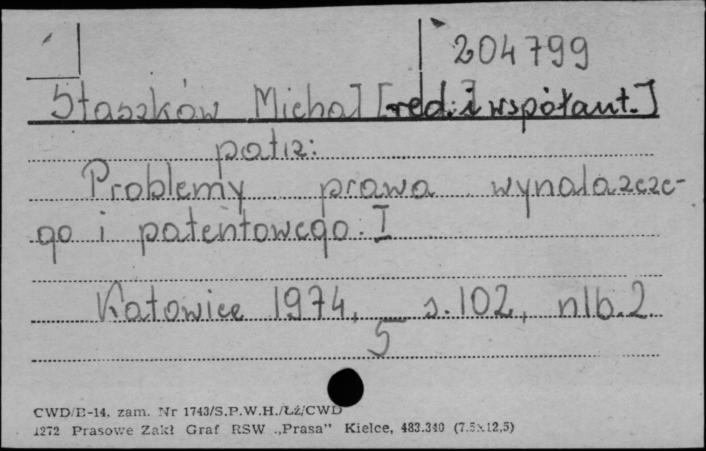 204799
Staszków Michał [red. i współaut.]
patrz:
Problemy prawa wynalazcze-
go i patentowego. I
Katowice 1974, s. 102, nlb. 2
5
CWD/B-14, zam. Nr 1743/S.P.W.H./Łź/CWD
1272 Prasowe Zakł Graf RSW „Prasa” Kielce, 483.340 (7.5x12,5)